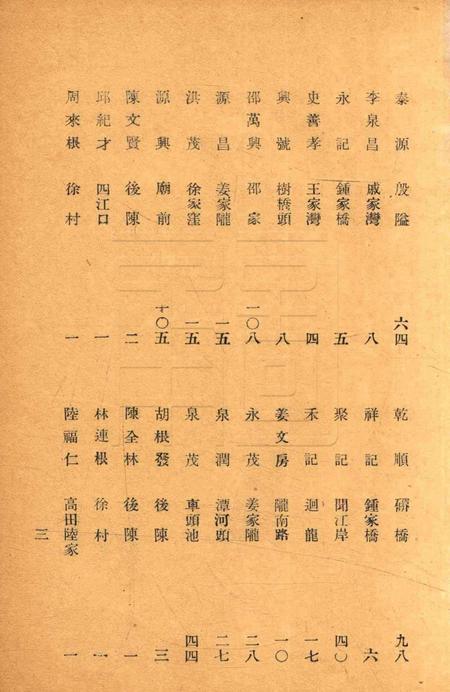 泰源 殷隘 六四
李泉昌 戚家灣 八
永記 鍾家橋 五
史善孝 王家灣 四
興號 樹橋頭 八
邵萬興 邵家 一〇八
源昌 姜家隴 一五
洪茂 徐家窪 一五
源興 廟前 十〇五
陳文賢 後陳 二
邱紀才 四江口 一
周來根 徐村 一
乾順 礄橋 九八
祥記 鍾家橋 六
聚記 聞江岸 四〇
禾記 迴龍 一七
姜文房 隴南路 一〇
永茂 姜家隴 二八
泉潤 潭河頭 二七
泉茂 車頭池 四四
胡根發 後陳 三
陳全林 後陳 一
林連根 徐村 一
陸福仁 高田陸家 一
三